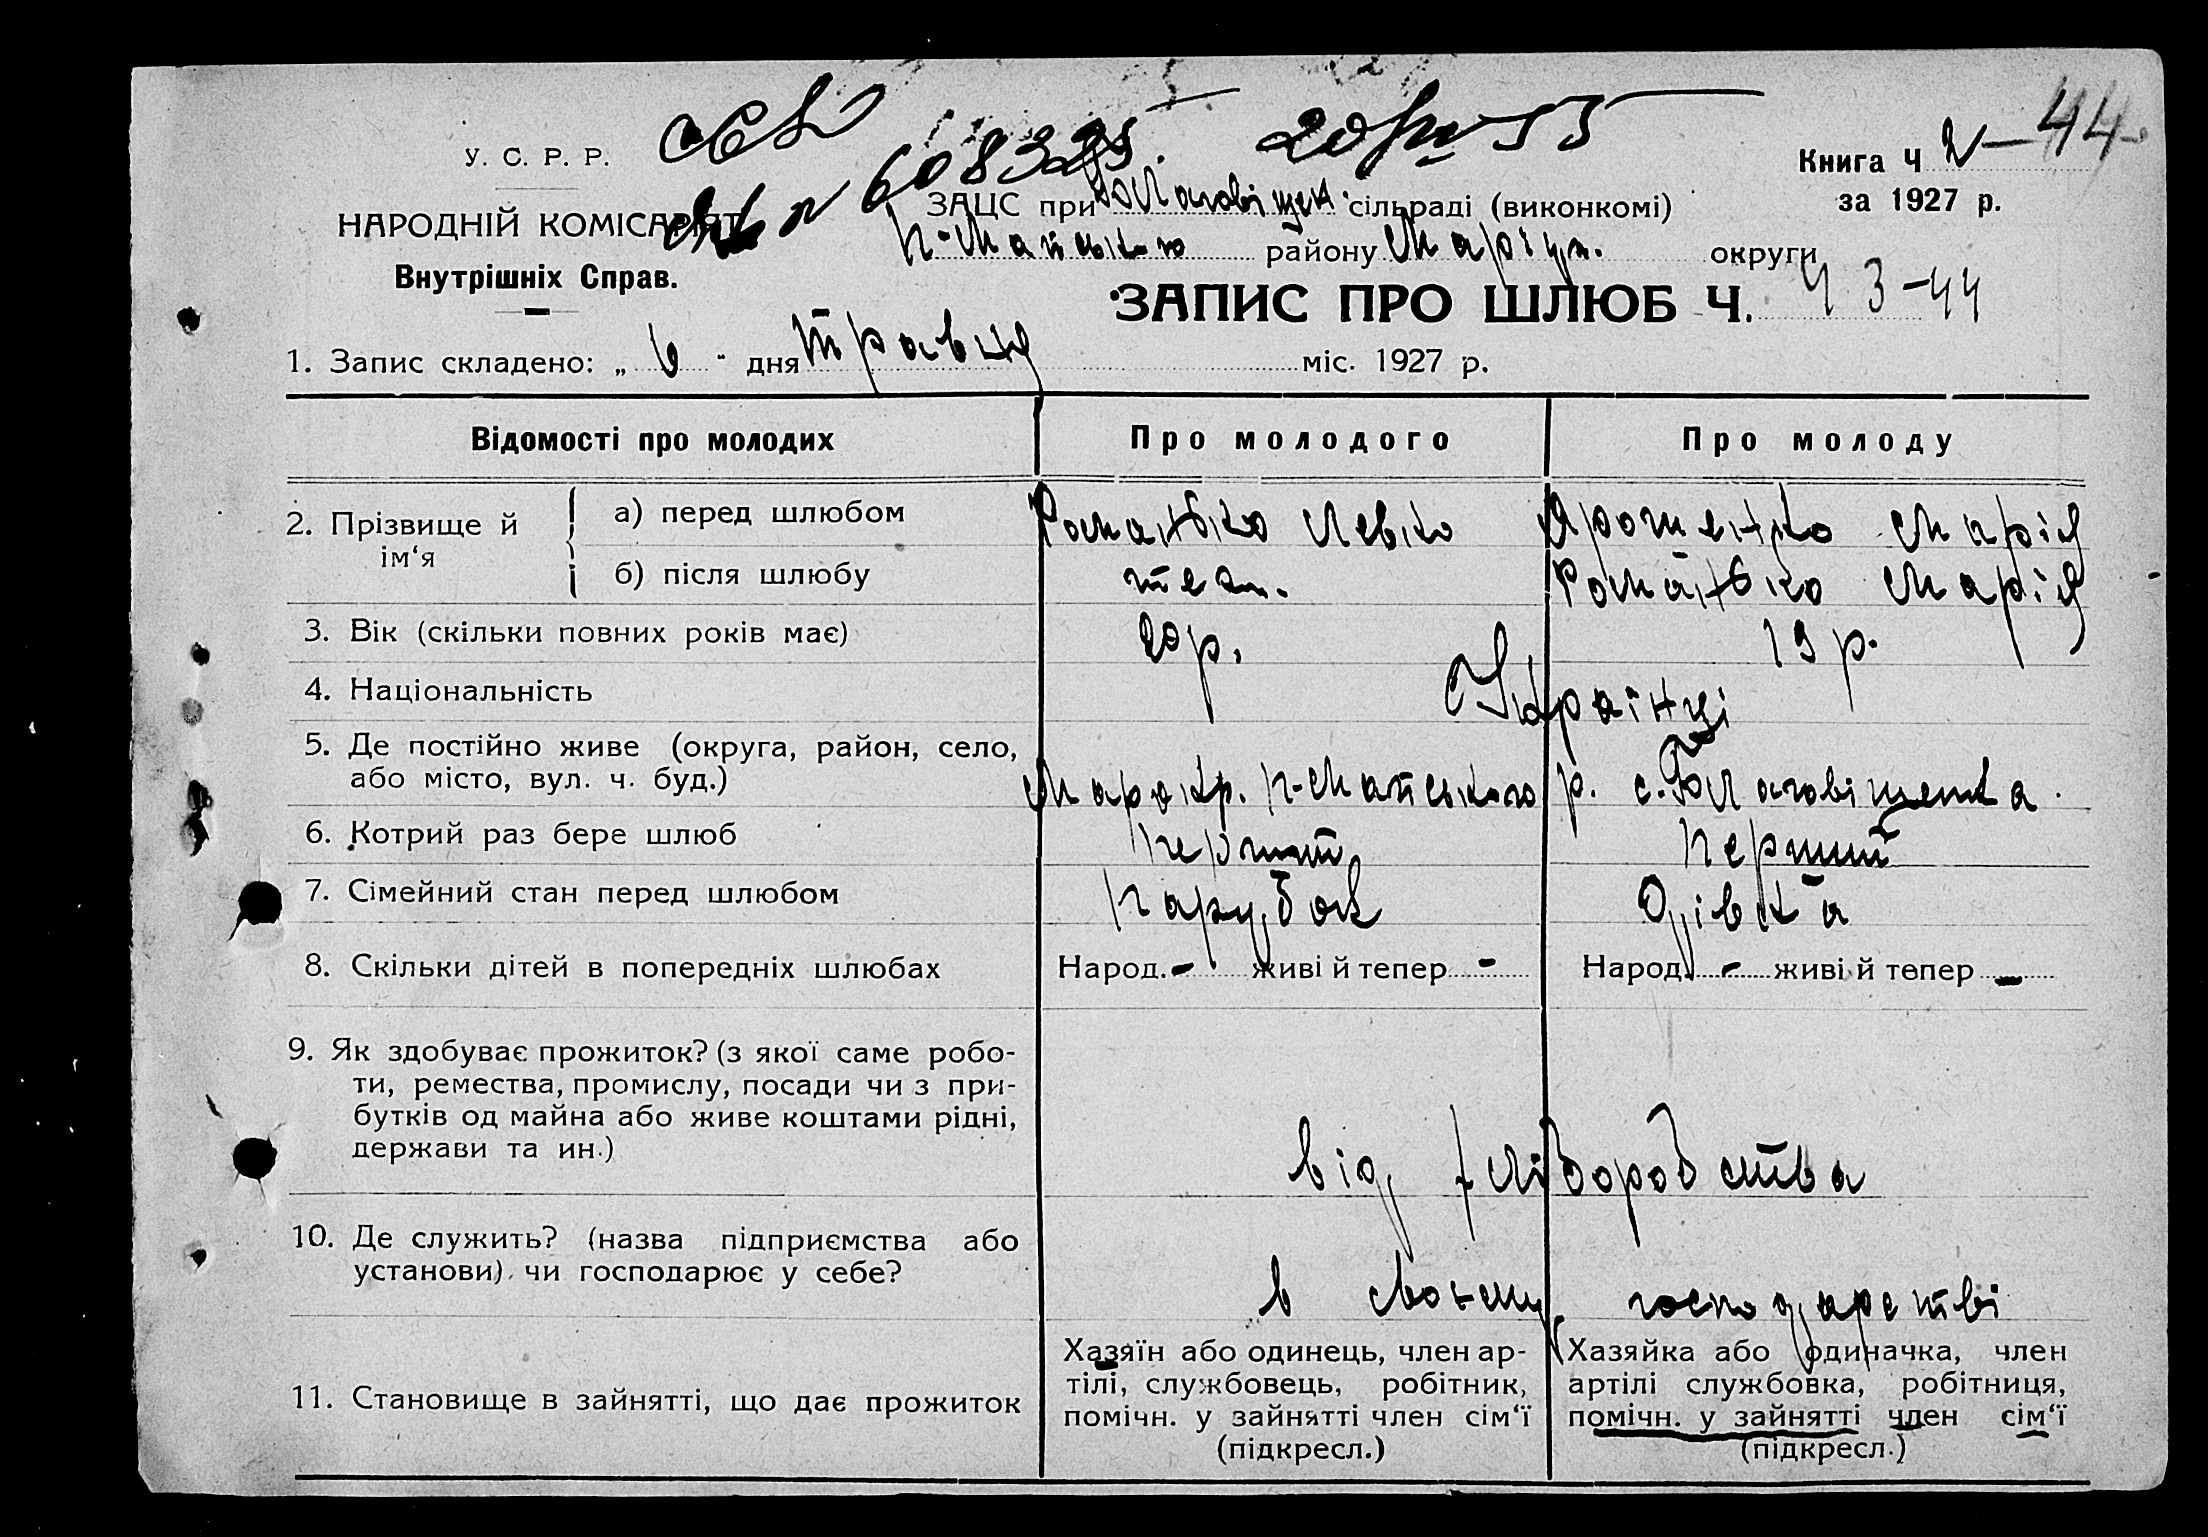 У. С. Р. Р.
НАРОДНІЙ КОМІСАРІЯТ
Внутрішніх Справ.
608325
Книга Ч 2-44
за 1927 р.
ЗАЦС при Благовіщен. сільраді (виконкомі)
району Маріуп. округи
ЗАПИС ПРО ШЛЮБ Ч. 43-44
1. Запис складено: „ 6 " дня травня міс. 1927 р.
Відомості про молодих Про молодого Про молоду
2. Прізвище й ім‘я
а) перед шлюбом Романько Левко Ярошенко Марія
б) після шлюбу теж. Романько Марія
3. Вік (скільки повних років має) 20 р. 19 р.
4. Національність Українці
5. Де постійно живе (округа, район, село,
або місто, вул. ч. буд.) Мар. окр. р. с. Благовіщенка.
6. Котрий раз бере шлюб перший перший
7. Сімейний стан перед шлюбом парубок дівка
8. Скільки дітей в попередніх шлюбах Народ. - живі й тепер - Народ. - живі й тепер -
9. Як здобуває прожиток? (з якої саме робо-
ти, ремества, промислу, посади чи з при-
бутків од майна або живе коштами рідні,
держави та ин.)
від хліборобства
10. Де служить? (назва підприємства або
установи) чи господарює у себе?
в своєму господарстві
11. Становище в зайнятті, що дає прожиток
Хазяїн або одинець, член ар-
тілі, службовець, робітник,
помічн. у зайнятті член сім‘ї
(підкресл.)
Хазяйка або одиначка, член
артілі службовка, робітниця,
помічн. у зайнятті член сім‘ї
(підкресл.)